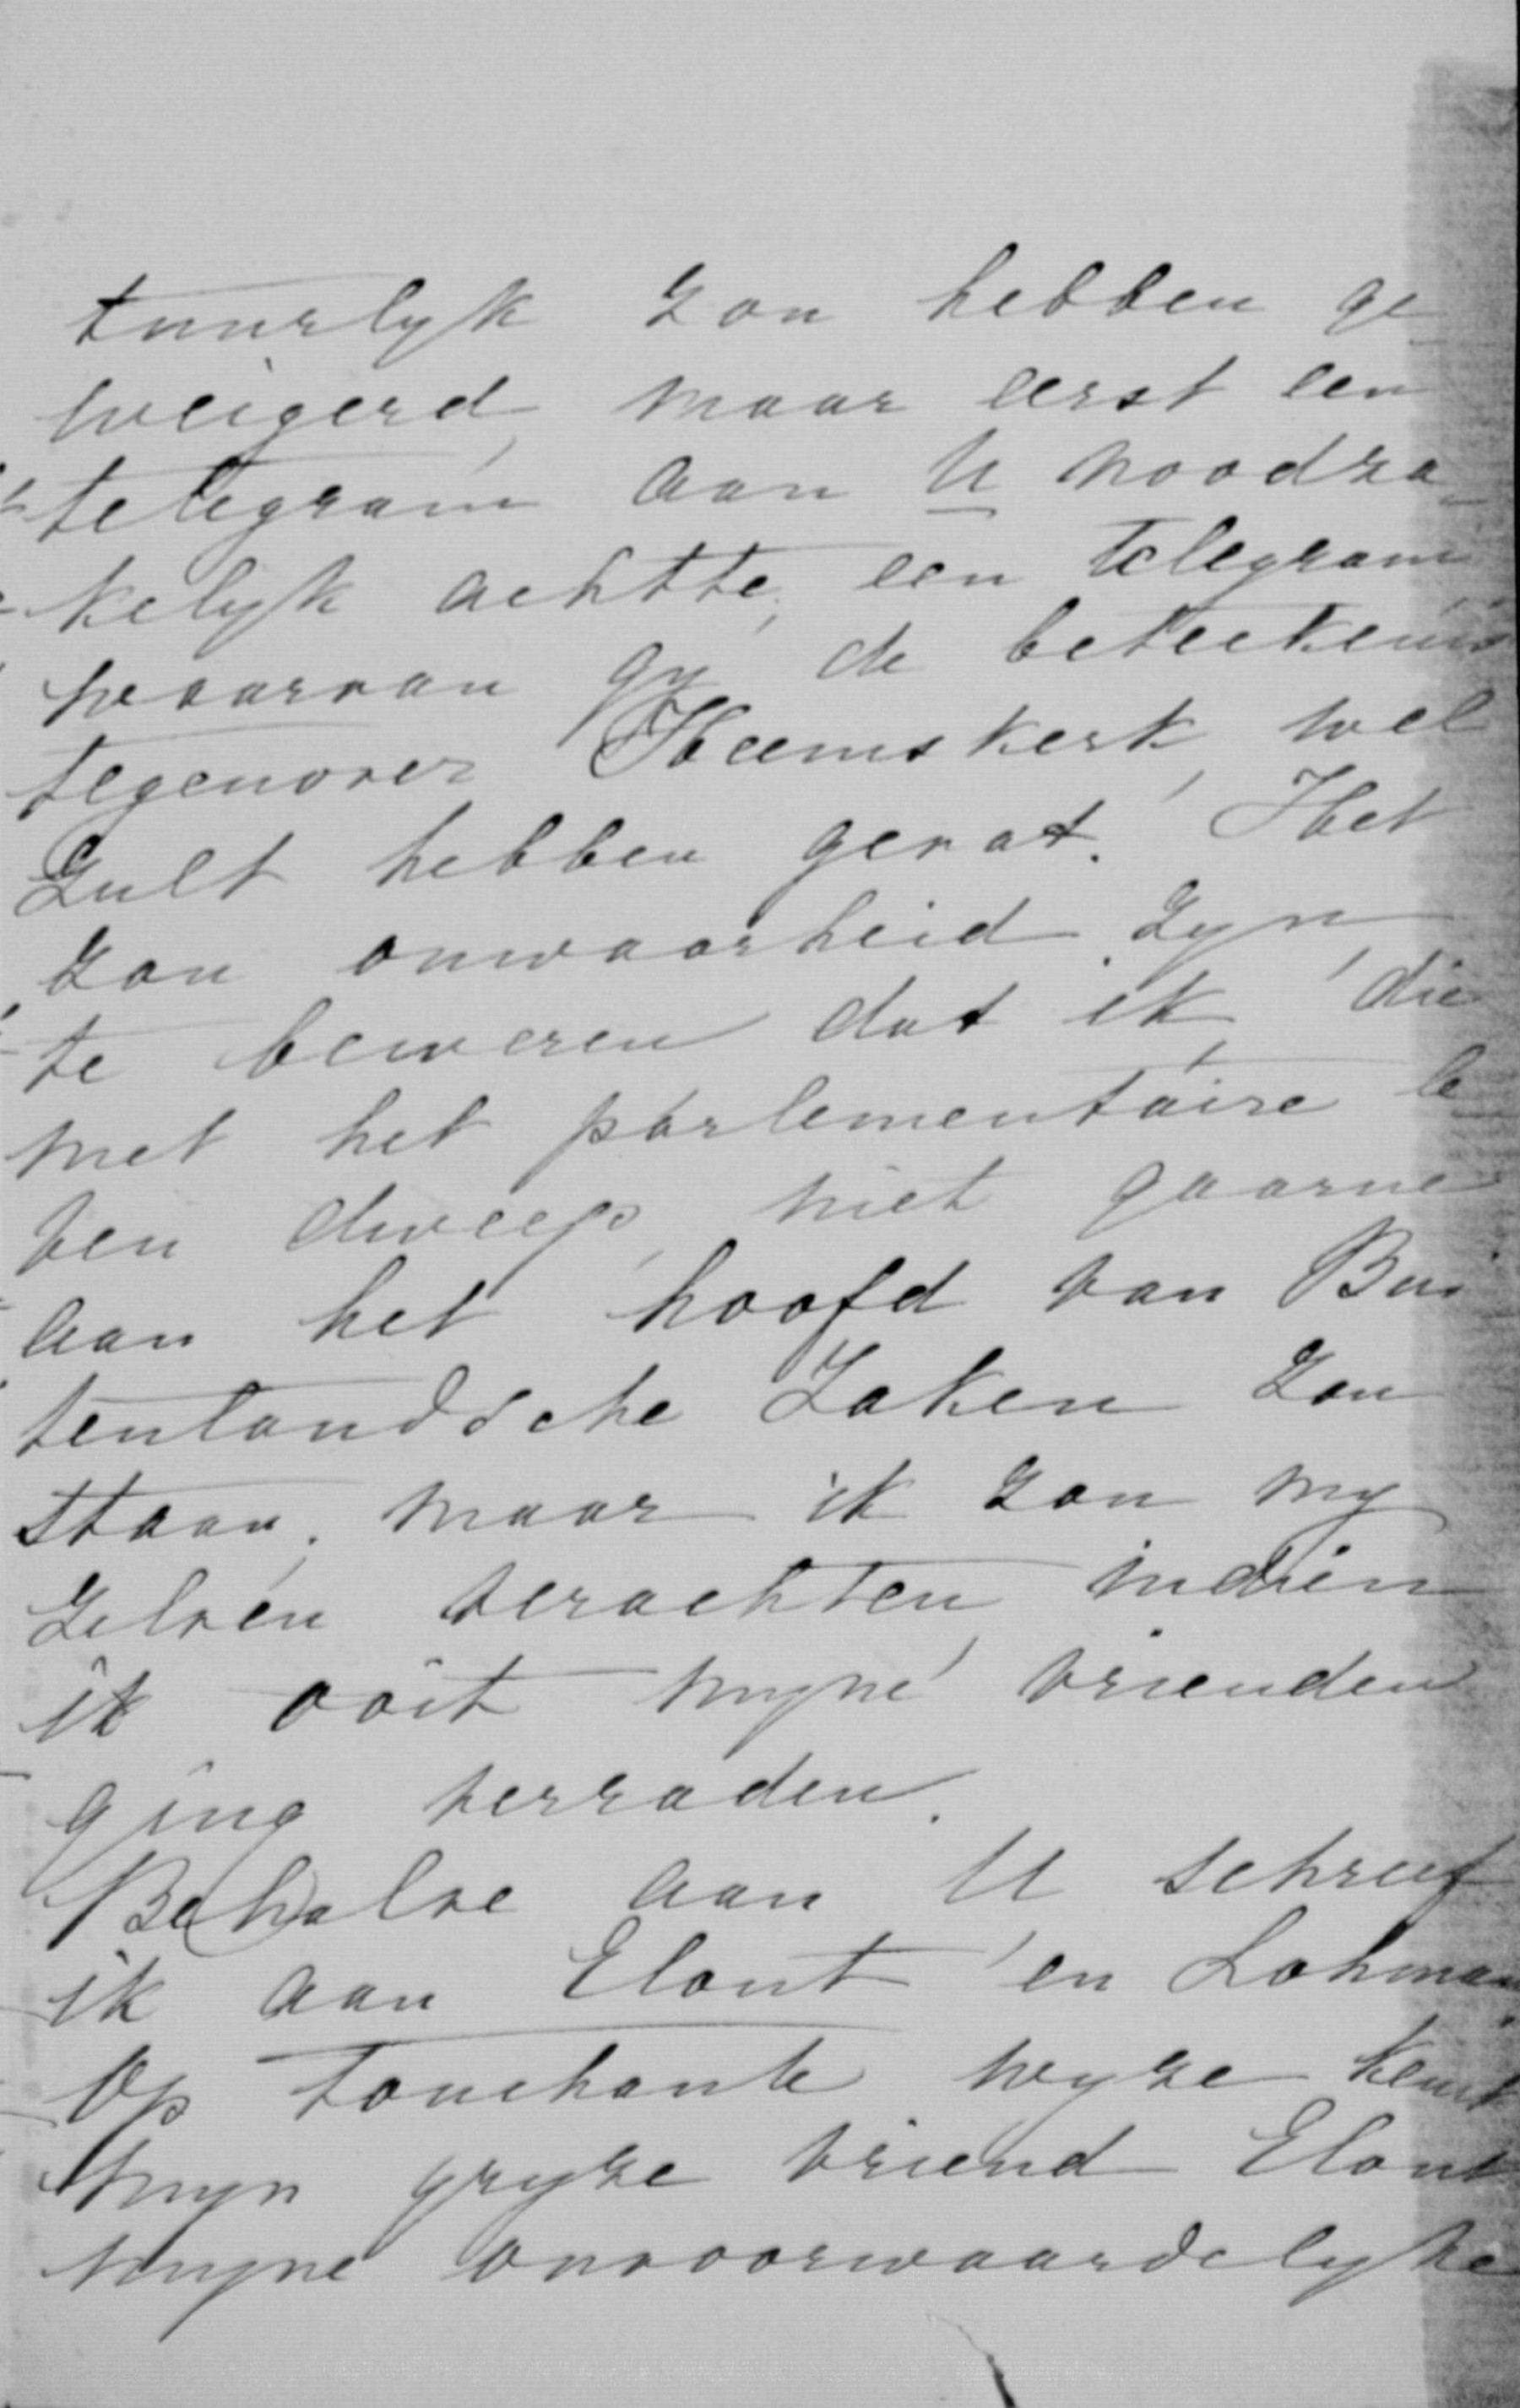 tuurlyk zou hebben ge
weigerd, maar eerst een
telegram aan U noodza
kelyk achtte; een telegram
waarvan gy de beteekenis
tegenover Heemskerk, wel
zult hebben gevat. Het
zou onwaarheid zyn
te beweren dat ik, die
met het parlementaire le
ven dweep, niet gaarne
aan het hoofd van Bui
tenlandsche Zaken zou
staan; maar ik zou my
zelven verachten, indien
ik ooit myne vrienden
ging verraden.
Behalve aan U schreef
ik aan Elout en Lohman.
Op touchante wyze keurt
myn gryze vriend Elout
myne onvoorwaardelyke